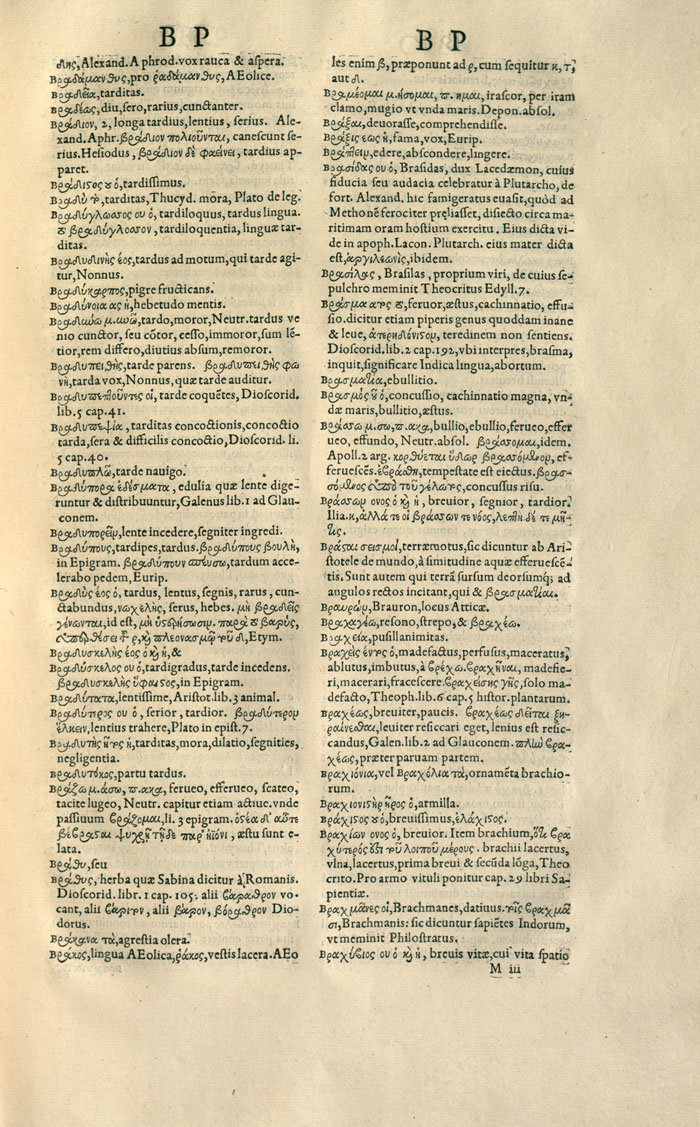 B P
δης, Alexand. Aphrod. vox rauca & aspera.
Βραδάμανθυς, pro ῥαδάμανθυς, AEolice.
Βραδεῖα, tarditas.
Βραδέως, diu, sero, rarius, cunctanter.
Βράδιον, 2, longa tardius, lentius, serius. Ale-
xand. Aphr. βράδιον πολιοῦνται, canescunt se-
rius. Hesiodus, βράδιον δὲ φαείνει, tardius ap-
paret.
Βράδιστος ου ὁ, tardissimus.
Βραδὺ τὸ, tarditas, Thucyd. mora, Plato de leg.
Βραδύγλωσσος ου ὁ, tardiloquus, tardus lingua.
τὸ βραδύγλοσσον, tardiloquentia, linguæ tar-
ditas.
Βραδυδινὴς έος, tardus ad motum, qui tarde agi-
tur, Nonnus.
Βραδύκαρπος, pigre fructicans.
Βραδύνοια ας ἡ, hebetudo mentis.
Βραδύνω μ. υνῶ, tardo, moror, Neutr. tardus ve
nio cunctor, seu cōtor, cesso, immoror, sum lē-
tior, rem differo, diutius absum, remoror.
Βραδυπειθὴς, tarde parens. βραδυπειθὴς φω
νὴ, tarda vox, Nonnus, quæ tarde auditur.
Βραδυπεπτοῦντες οἱ, tarde coquētes, Dioscorid.
lib. 5 cap. 41.
Βραδυπεψία, tarditas concoctionis, concoctio
tarda, sera & difficilis concoctio, Dioscorid. li.
5 cap. 40.
Βραδυπλῶ, tarde nauigo.
Βραδύπορα ἐδέσματα, edulia quæ lente dige-
runtur & distribuuntur, Galenus lib. 1 ad Glau-
conem.
Βραδυπορεῖν, lente incedere, segniter ingredi.
Βραδύπους, tardipes, tardus. βραδύπους βουλὴ,
in Epigram. βραδύπουν σπεύσω, tardum acce-
lerabo pedem, Eurip.
Βραδὺς έος ὁ, tardus, lentus, segnis, rarus, cun-
ctabundus, νωχελὴς, serus, hebes. μὴ βραδεῖς
γένωνται, id est, μὴ ὑστερήσωσιν. παρὰ τὸ βαρὺς,
ὑπερθέσει τοῦ ρ, καὶ πλεονασμῷ τοῦ δ, Etym.
Βραδυσκελὴς έος ὁ καὶ ἡ, &
Βραδύσκελος ου ὁ, tardigradus, tarde incedens.
βραδυσκελὴς ὕφαιστος, in Epigram.
Βραδύτατα, lentissime, Aristot. lib. 3 animal.
Βραδύτερος ου ὁ, serior, tardior. βραδύτερον
ἕλκειν, lentius trahere, Plato in epist. 7.
Βραδυτὴς ῆτος ἡ, tarditas, mora, dilatio, segnities,
negligentia.
Βραδυτόκος, partu tardus.
Βράζω μ. άσω, π. ακα, ferueo, efferueo, scateo,
tacite lugeo, Neutr. capitur etiam actiue. vnde
passiuum βράζομαι, li. 3 epigram. ὀστέα δ' αὖτε
βέβρασται ψυχρῇ τῇδε παρ' ἠϊόνι, æstu sunt e-
lata.
Βράθυ, seu
Βράθυς, herba quæ Sabina dicitur à Romanis.
Dioscorid. libr. 1 cap. 105. alii βάραθρον vo-
cant, alii βάρυτον, alii βάρον, βόραθρον Dio-
dorus.
Βράκανα τὰ, agrestia olera.
Βράκος, lingua AEolica, ῥάκος, vestis lacera. AEo
B P
les enim β, præponunt ad ρ, cum sequitur κ, τ,
aut δ.
Βραμέομαι μ. ήσομαι, π. ημαι, irascor, per iram
clamo, mugio vt vnda maris. Depon. absol.
Βράξαι, deuorasse, comprehendisse.
Βράξις εως ἡ, fama, vox, Eurip.
Βράπτειν, edere, abscondere, lingere.
Βρασίδας ου ὁ, Brasidas, dux Lacedæmon, cuius
fiducia seu audacia celebratur à Plutarcho, de
fort. Alexand. hic famigeratus euasit, quòd ad
Methonē ferociter prȩliasset, disiecto circa ma-
ritimam oram hostium exercitu. Eius dicta vi-
de in apoph. Lacon. Plutarch. eius mater dicta
est, ἀργιλεωνὶς, ibidem.
Βρασίλας, Brasilas, proprium viri, de cuius se-
pulchro meminit Theocritus Edyll. 7.
Βράσμα ατος τὸ, feruor, æstus, cachinnatio, effu-
sio. dicitur etiam piperis genus quoddam inane
& leue, ἀτερηδόνιστον, teredinem non sentiens.
Dioscorid. lib. 2 cap. 192, vbi interpres, brasma,
inquit, significare Indica lingua, abortum.
Βρασματία, ebullitio.
Βρασμὸς οῦ ὁ, concussio, cachinnatio magna, vn-
dæ maris, bullitio, æstus.
Βράσσω μ. σω, π. ακα, bullio, ebullio, ferueo, effer
ueo, effundo, Neutr. absol. βράσσομαι, idem.
Apoll. 2 arg. κορθύεται ὕδωρ βρασσόμενον, ef-
feruescēs. ἐβράσθη, tempestate est eiectus. βρασ-
σόμενος ὑπὸ τοῦ γέλωτος, concussus risu.
Βράσσων ονος ὁ καὶ ἡ, breuior, segnior, tardior.
Ilia. κ, ἀλλά τε οἱ βράσσων τε νόος, λεπτὴ δέ τε μῆ-
τις.
Βράσται σεισμοὶ, terræmotus, sic dicuntur ab Ari-
stotele de mundo, à similitudine aquæ efferuescē-
tis. Sunt autem qui terrā sursum deorsumq; ad
angulos rectos incitant, qui & βρασματίαι.
Βραυρὼν, Brauron, locus Atticæ.
Βραχαγέω, resono, strepo, & βραχέω.
Βραχεία, pusillanimitas.
Βραχεὶς έντος ὁ, madefactus, perfusus, maceratus,
ablutus, imbutus, à βρέχω. βραχῆναι, madefie-
ri, macerari, fracescere. βραχείσης γῆς, solo ma-
defacto, Theoph. lib. 6 cap. 5 histor. plantarum.
Βραχέως, breuiter, paucis. βραχέως δεῖται ξη-
ραίνεσθαι, leuiter resiccari eget, lenius est resic-
candus, Galen. lib. 2 ad Glauconem. πλὴν βρα-
χέως, præter paruam partem.
Βραχιόνια, vel Βραχόλια τὰ, ornamēta brachio-
rum.
Βραχιονιστὴρ ῆρος ὁ, armilla.
Βράχιστος ου ὁ, breuissimus, ἐλάχιστος.
Βραχίων ονος ὁ, breuior. Item brachium, ὅτι βρα
χύτερός ἐστι τοῦ λοιποῦ μέρους. brachii lacertus,
vlna, lacertus, prima breui & secūda lōga, Theo
crito. Pro armo vituli ponitur cap. 29 libri Sa-
pientiæ.
Βραχμᾶνες οἱ, Brachmanes, datiuus. τοῖς βραχμᾶ-
σι, Brachmanis: sic dicuntur sapiētes Indorum,
vt meminit Philostratus.
Βραχύβιος ου ὁ καὶ ἡ, breuis vitæ, cui vita spatio
M iii